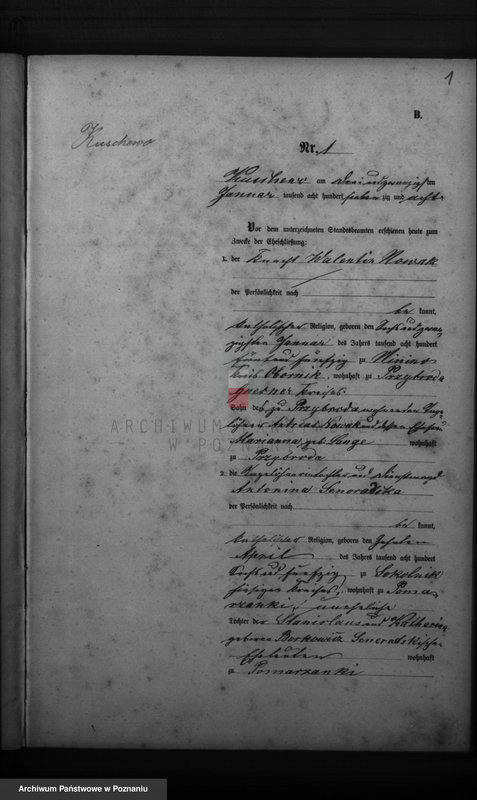 1
B.
Kuschewo
Nr. 1
Kuschewo am dreiundzwanzigsten
Januar tausend acht hundert siebenzig und acht
Vor dem unterzeichneten Standesbeamten erschienen heute zum
Zwecke der Eheschließung:
1. der Knecht Valentin Nowak
der Persönlichkeit nach
be kannt,
katholischer Religion, geboren den Sechsundzwan-
zigsten Januar des Jahres tausend acht hundert
fünf und fünfzig zu Ninino
Kreis Obornik, wohnhaft zu Przybroda
Gnesner Kreises
Sohn des zu Przybroda wohnenden
Nowak und dessen Ehefrau
Marianna geb. Lange wohnhaft
zu Przybroda
2. die und Dienstmagd
Antonina
der Persönlichkeit nach
be kannt,
katholischer Religion, geboren den Zehnten
April des Jahres tausend acht hundert
Sechs und fünfzig zu Sokolnik
hiesigen Kreises, wohnhaft zu Poma-
rzanki, uneheliche
Tochter der Stanislaus und Katharina
geborene Borkowicz
Eheleuten wohnhaft
zu Pomarzanki
ARCHIWUM
W POZNANIU
Archiwum Państwowe w Poznaniu